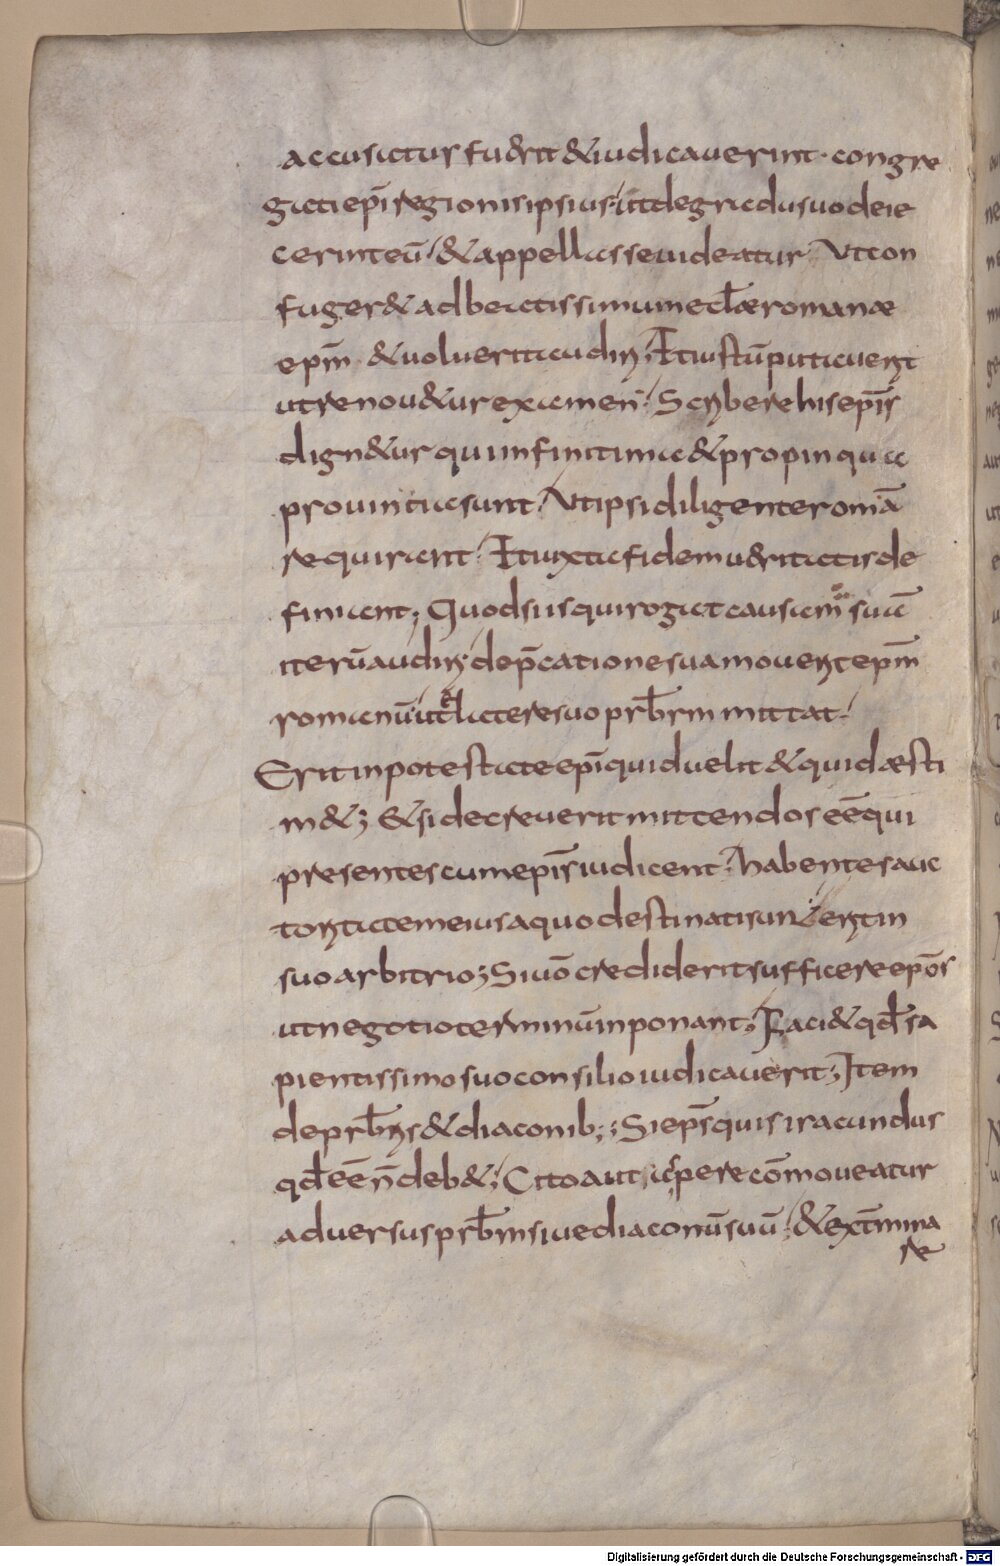 accusatus fuerit & iudicauerint · congre
gati epi regionis ipsius; ut de gradu suo deie
cerint eū; & appellasse uideatur; Vt con
fuger& ad beatissimum eclæ romanæ
epm̄ & uoluerit audiri; Et iustū putauerit
ut renou&ur examen; Scribere his epis
dign&ur qui in finitima & propinqua
prouincia sunt; Vt ipsi diligenter omā
requirant; Et iuxta fidem ueritatis de
finiant; Quod si is qui rogat causam suā
iterū audiri; dep̄catione sua mouerit epm̄
romanū; ut a latere suo prb̄rm mittat;
Erit in potestate epi quid uelit & quid æsti
m&; & si decreuerit mittendos eē qui
presentes cum epis iudicent; habentes auc
toritatem eius a quo destinati sunt erit in
suo arbitrio; Si uō crediderit sufficere epōs
ut negotio terminū inponant; Faci& qđ sa
pientissimo suo consilio iudicauerit; Item
de prb̄ris & diaconib; ; Si eps quis iracundus
qđ eē n̄ deb&; Cito aut aspere cōmoueatur
aduersus prb̄m siue diaconū suū; & extmina
re
Digitalisierung gefördert durch die Deutsche Forschungsgemeinschaft - DFG